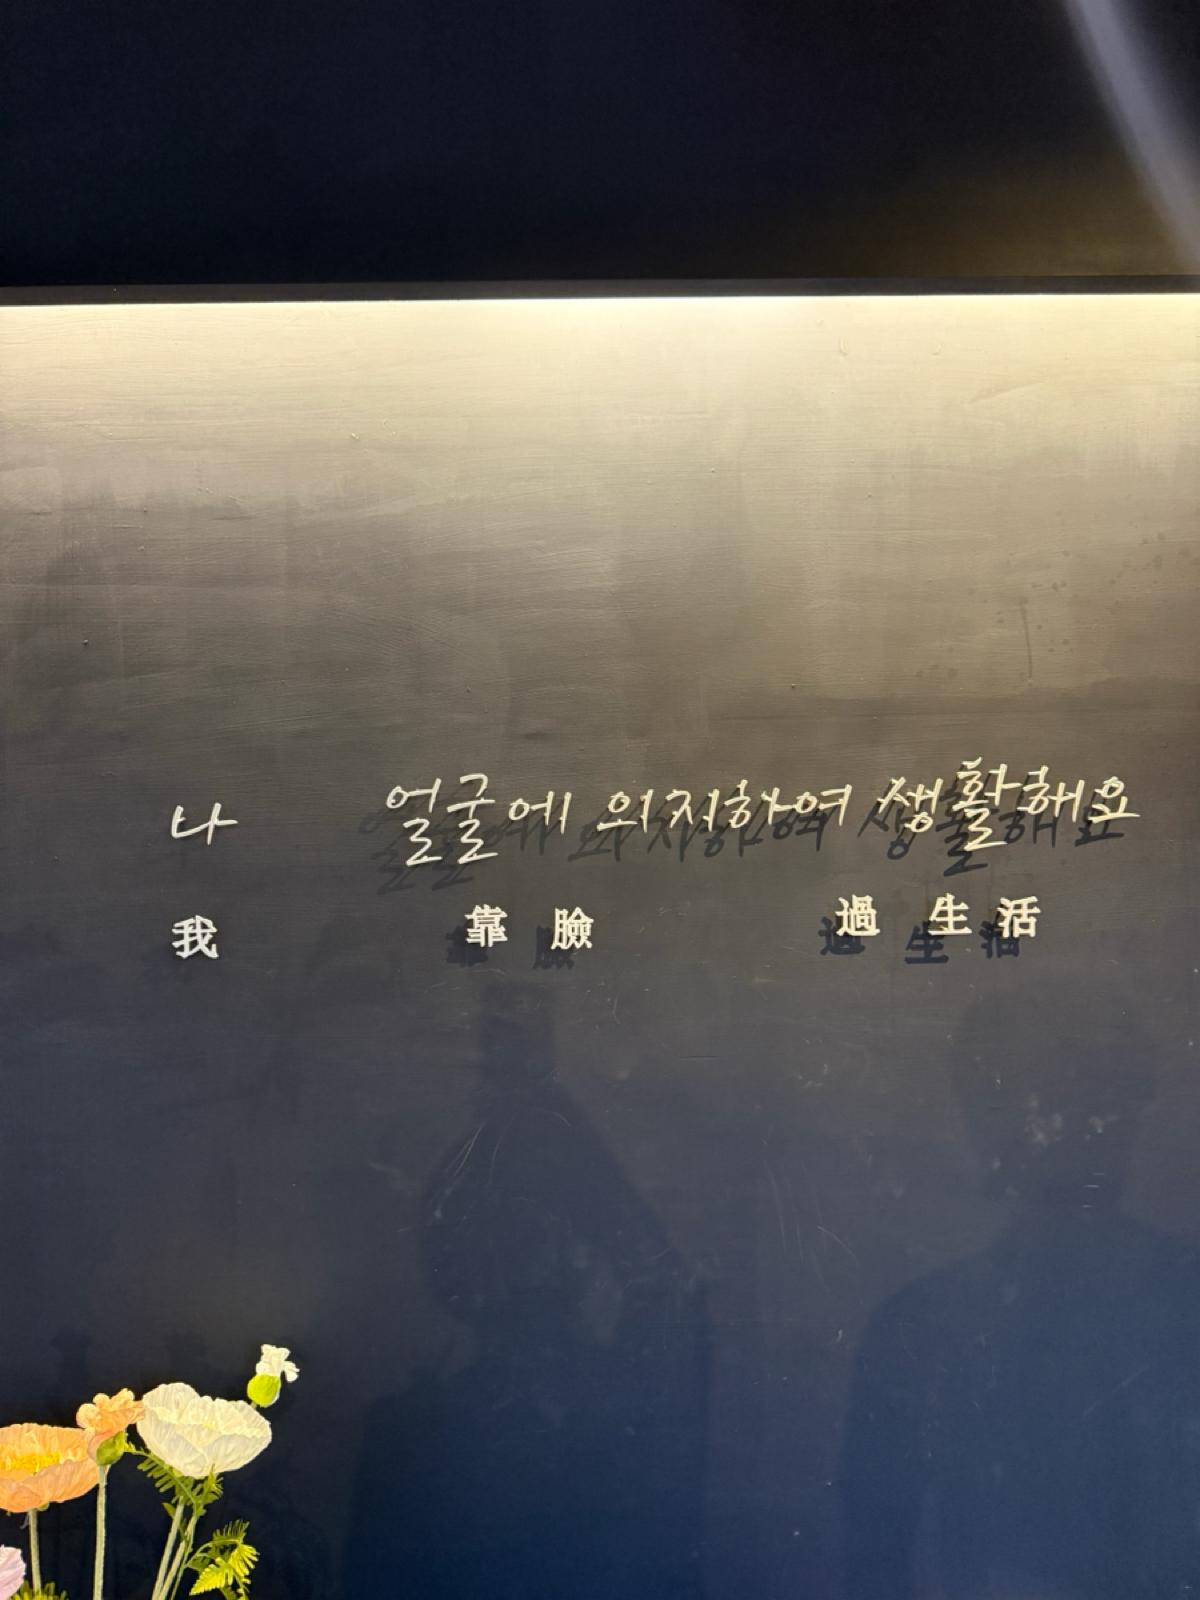 나 얼굴에 의지하여 생활해요
我 靠臉 過生活